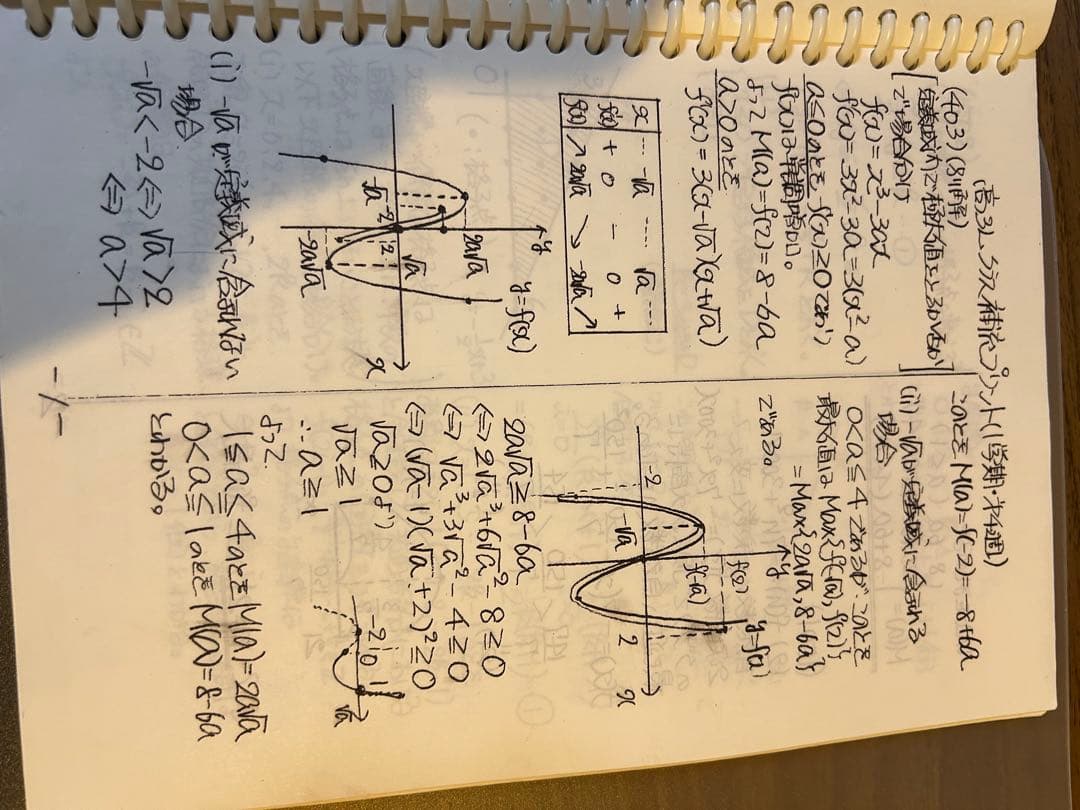 高3L 5次補充プリント(1学期・第4週)
(403)(別解)
[定義域内で極大値をとるか否かで場合分け]
f(x)=x³-3ax
f'(x)=3x²-3a=3(x²-a)
a≦0のとき f'(x)≧0であり
f(x)は単調増加。
よってM(a)=f(2)=8-6a
a>0のとき
f'(x)=3(x-√a)(x+√a)
x ... -√a ... √a ...
f'(x) + 0 - 0 +
f(x) ↗ 2a√a ↘ -2a√a ↗
y
y=f(x)
2a√a
-√a -2 2 √a x
-2a√a
(i) -√aが定義域に含まれない
場合
-√a<-2⇔√a>2
⇔ a>4
このときM(a)=f(-2)=-8+6a
(ii) -√aが定義域に含まれる
場合
0<a≦4であるが このとき
最大値はMax{f(-√a), f(2)}
=Max{2a√a, 8-6a}
である。
y
y=f(x)
f(2)
f(-√a)
-2 -√a 2 x
2a√a≧8-6a
⇔2√a³+6√a²-8≧0
⇔√a³+3√a²-4≧0
⇔(√a-1)(√a+2)²≧0
√a≧0より
√a≧1
∴a≧1
-2 0 1 √a
よって
1≦a≦4のときM(a)=2a√a
0<a≦1のときM(a)=8-6a
とわかる。
-1-